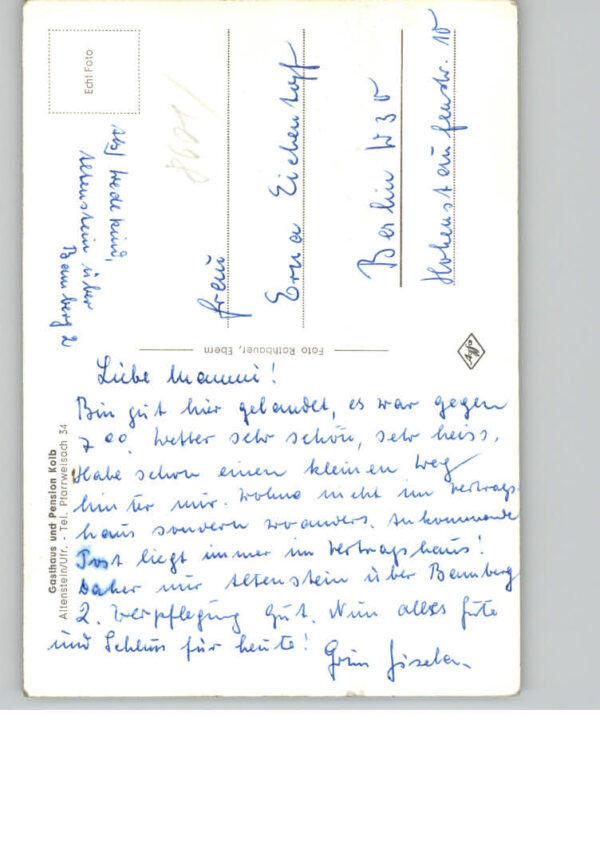 Liebe Mammi!
Bin gut hier gelandet, es war gegen
7 00. Wetter sehr schön, sehr heiss.
Habe schon einen kleinen Weg
hinter mir. Wohne nicht im Vertrags-
haus sondern woanders. Ankommende
Post liegt immer im Vertragshaus!
Daher nur Altenstein über Bamberg
2. Verpflegung gut. Nun alles Gute
und Schluss für heute!
Gisela.
Gasthaus und Pension Kolb
Altenstein/Ufr. - Tel. Pfarrweisach 34
Foto Rothbauer, Ebern
Echt Foto
Wedekind,
Altenstein über
Bamberg 2
Frau
Erna Eichentopf
Berlin W30
Hohenstaufenstr. 10
Agfa